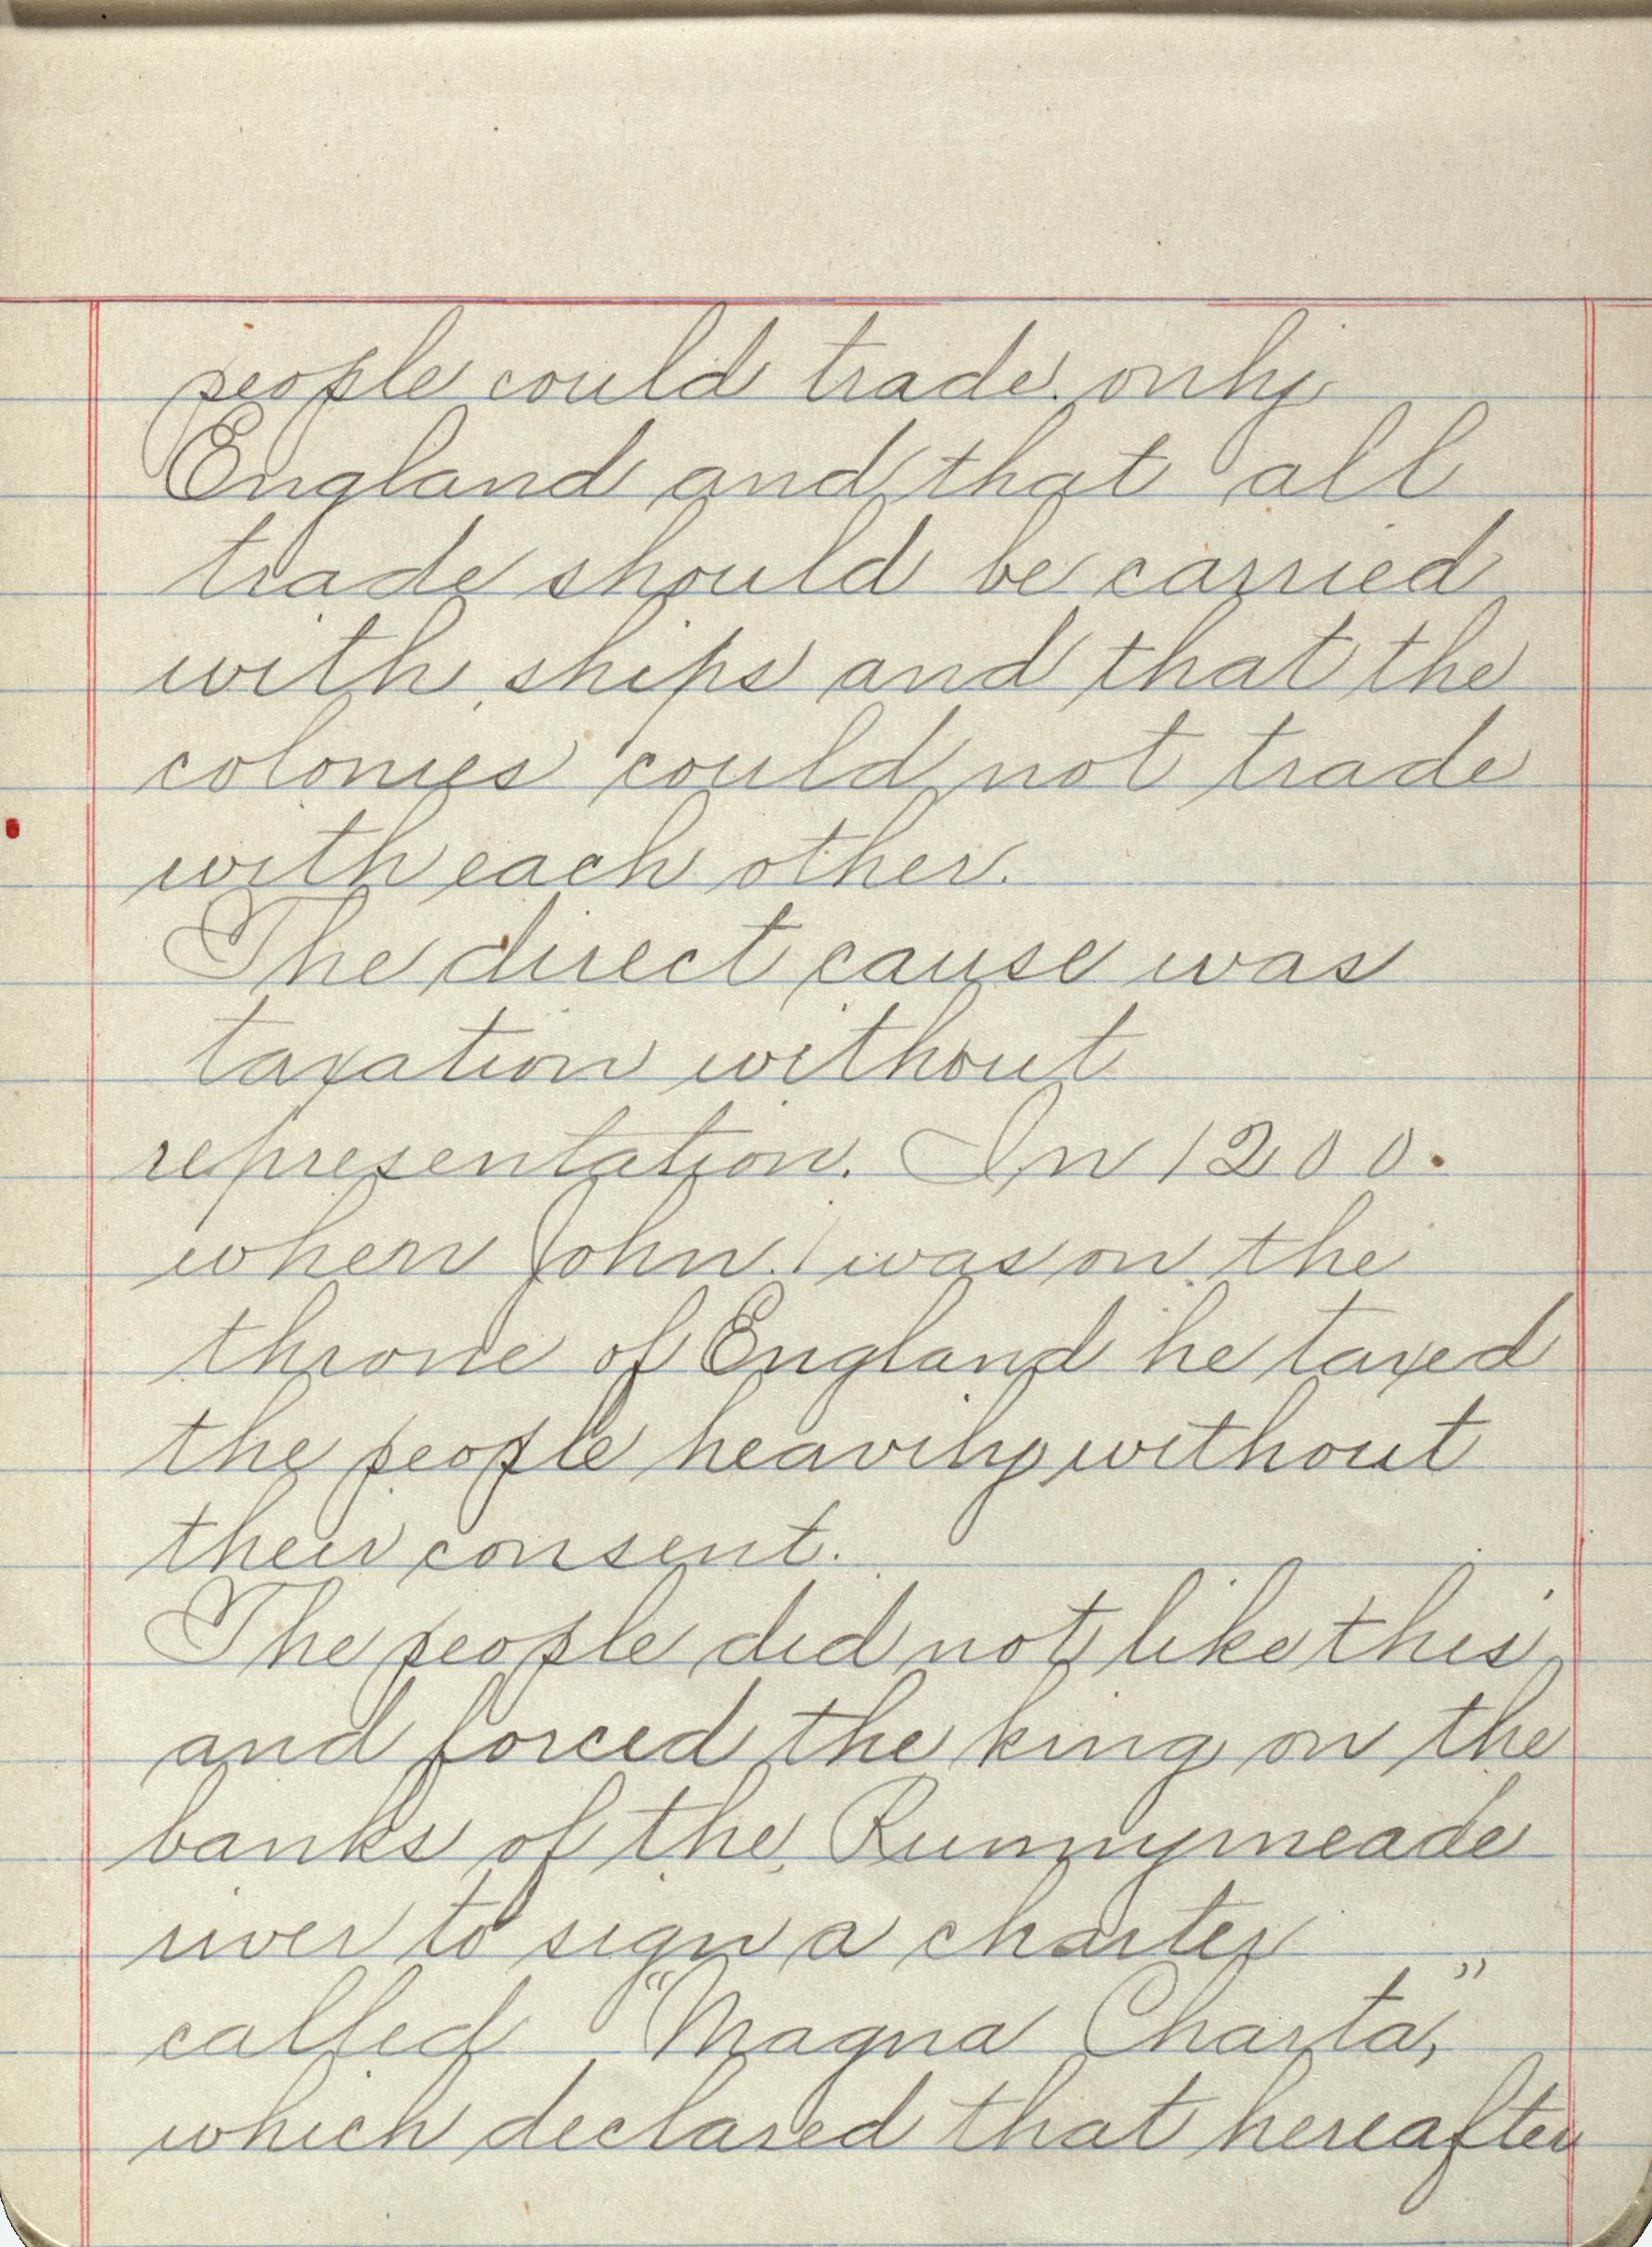 people could trade only
England and that all
trade should be carried
with ships and that the
colonies could not trade
with each other.
The direct cause was
taxation without
representation. In 1200.
when John 1 was on the
throne of England he taxed
the people heavily without
their consent.
The people did not like this
and forced the king on the
banks of the Runnymeade
river to sign a charter
called "Magna Charta,"
which declared that hereafter